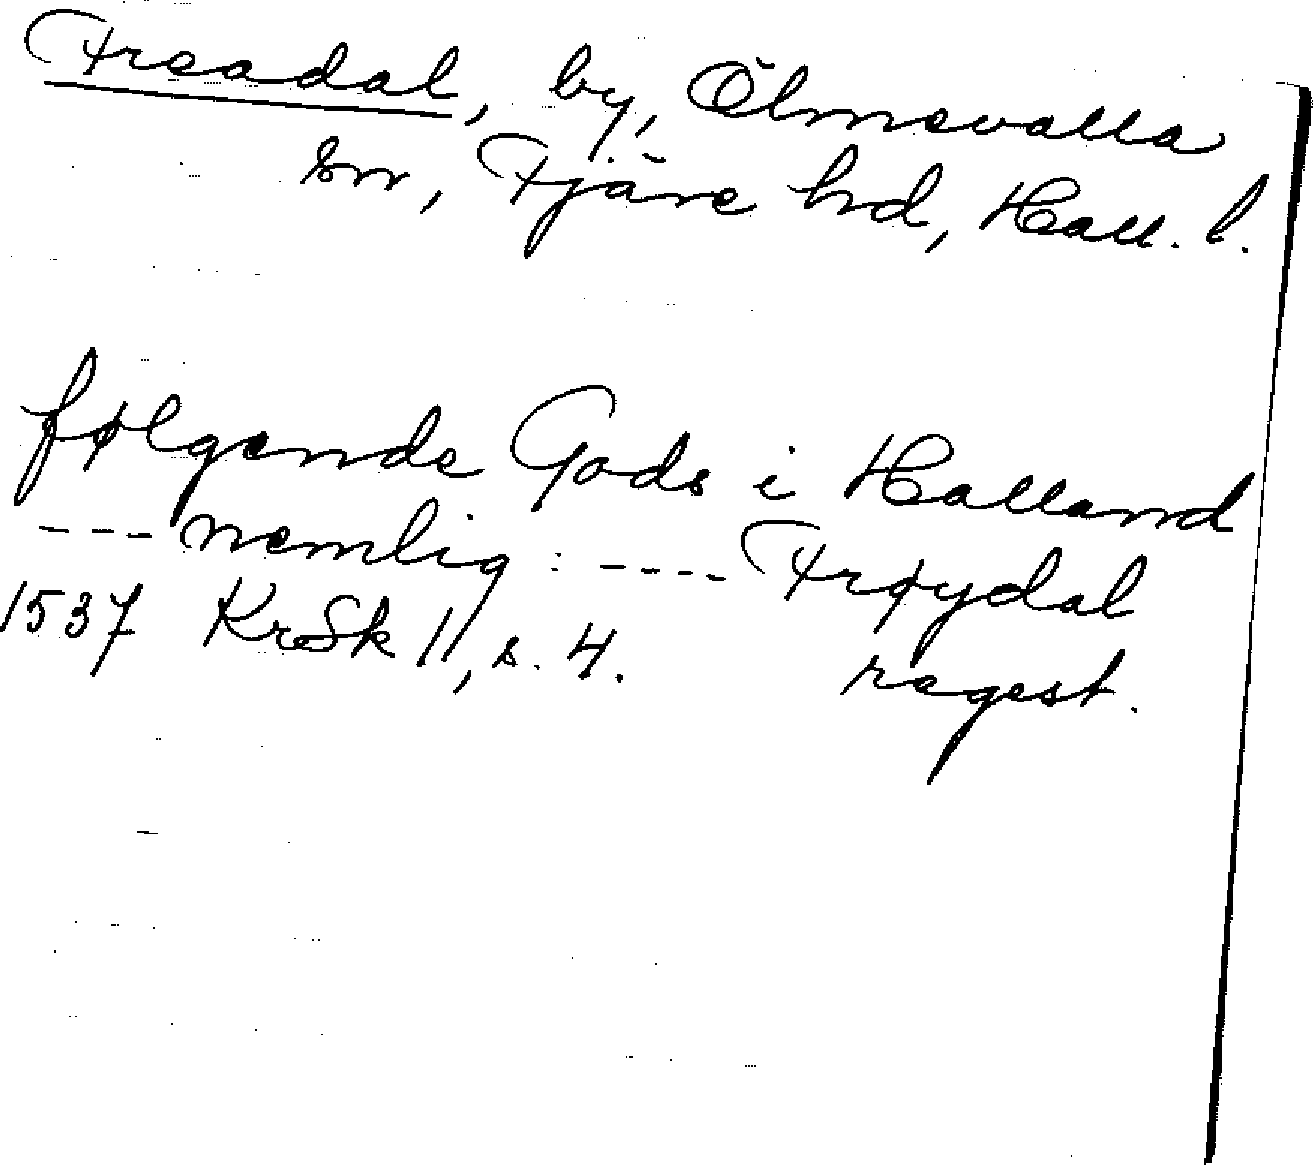 Freadal, by, Ölmevalla
sn, Fjäre hd, Hall. l.
følgende Gods i Halland
---nemlig: ---- Frøydal
1537 KrSk II, s. 4. regest.